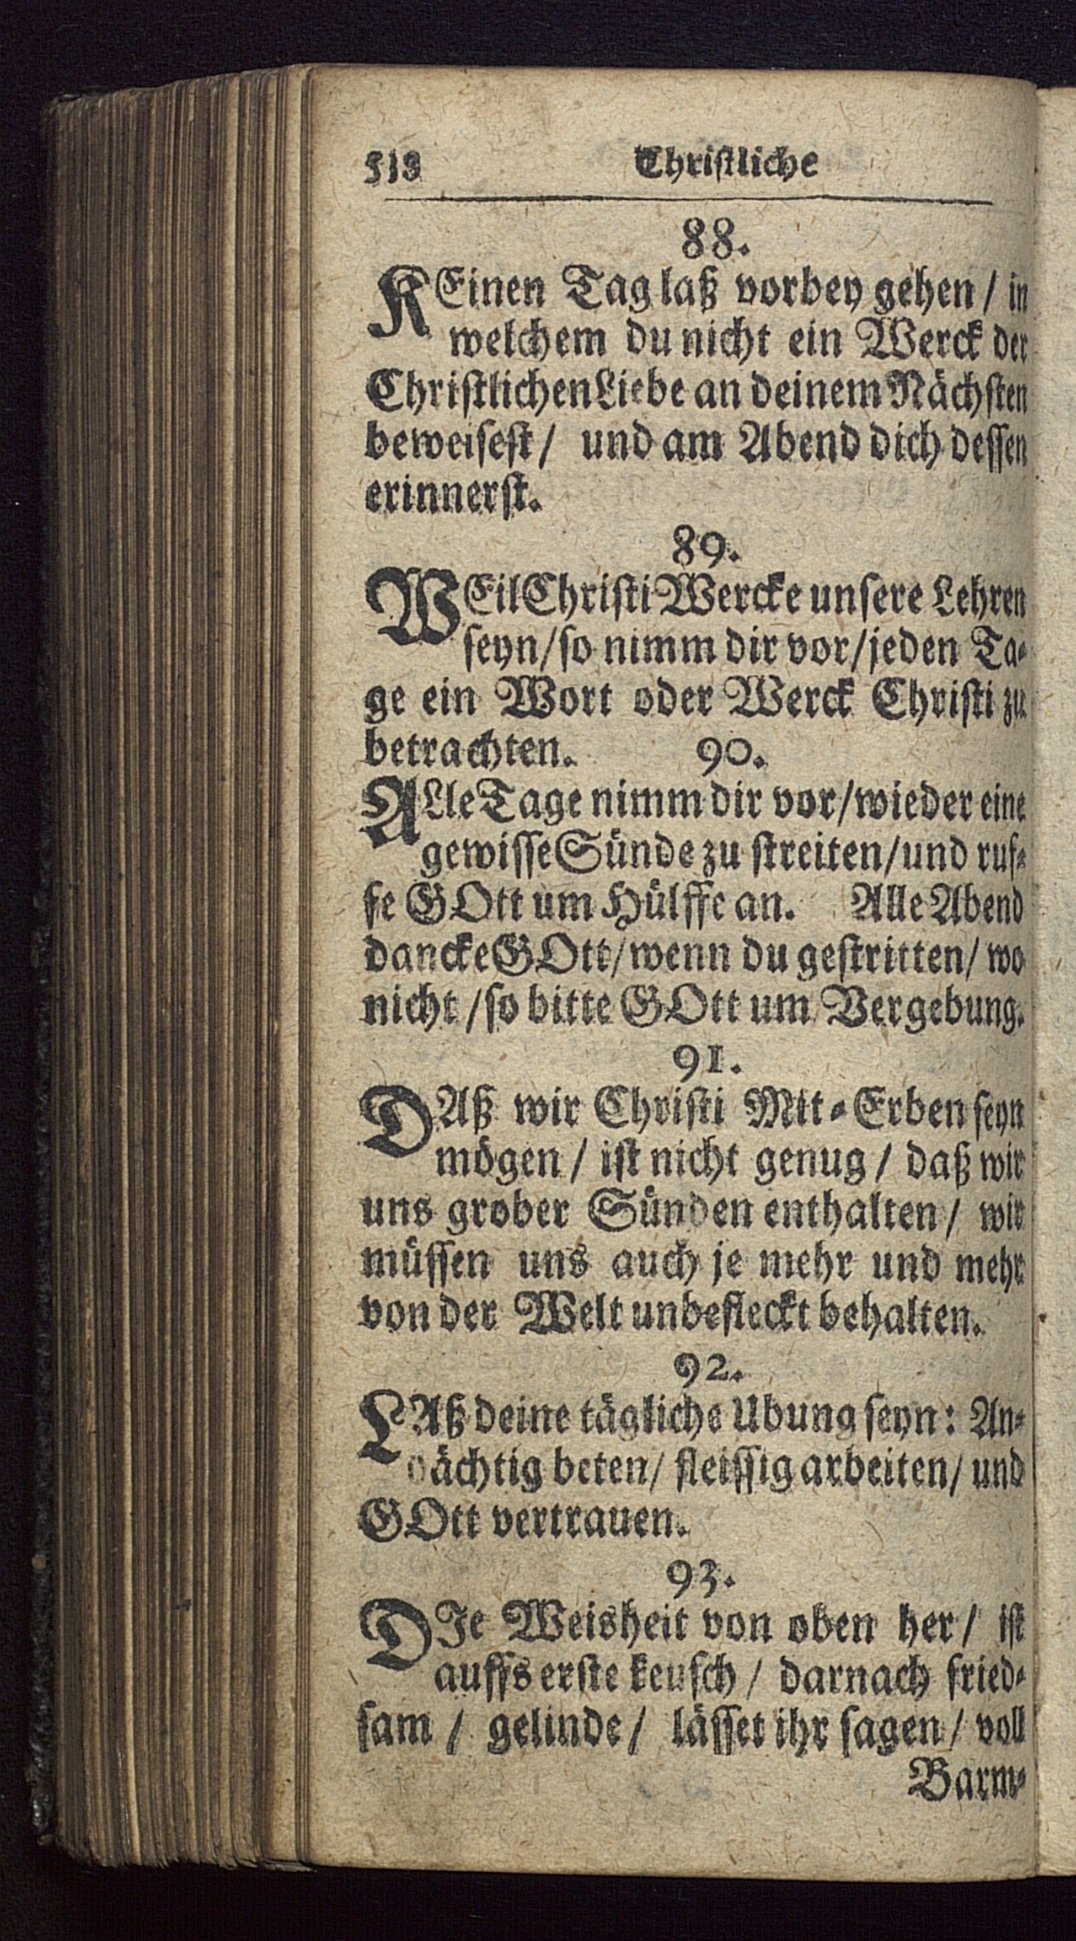 518 Christliche
88.
KEinen Tag laß vorbey gehen / in
welchem du nicht ein Werck der
Christlichen Liebe an deinem Nächsten
beweisest / und am Abend dich dessen
erinnerst.
89.
WEil Christi Wercke unsere Lehren
seyn / so nimm dir vor / jeden Ta-
ge ein Wort oder Werck Christi zu
betrachten. 90.
ALle Tage nimm dir vor / wieder eine
gewisse Sünde zu streiten / und ruf-
fe GOtt um Hülffe an. Alle Abend
dancke GOtt / wenn du gestritten / wo
nicht / so bitte GOtt um Vergebung.
91.
DAß wir Christi Mit-Erben seyn
mögen / ist nicht genug / daß wir
uns grober Sünden enthalten / wir
müssen uns auch je mehr und mehr
von der Welt unbefleckt behalten.
92.
LAß deine tägliche Ubung seyn: An-
dächtig beten / fleissig arbeiten / und
GOtt vertrauen.
93.
DIe Weisheit von oben her / ist
auffs erste keusch / darnach fried-
sam / gelinde / lässet ihr sagen / voll
Barm-